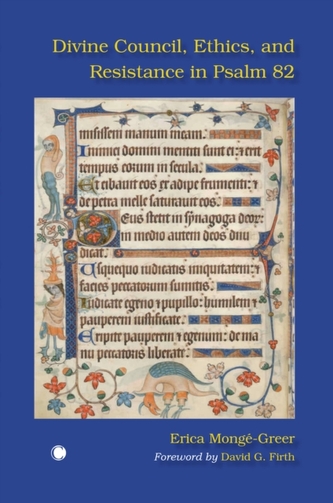 Divine Council, Ethics, and
Resistance in Psalm 82
misissem manum meam.
Inimici domini mentiti sunt ei: ⁊ erit
tempus eorum in secula.
Et cibauit eos ex adipe frumenti: ⁊
de petra melle saturauit eos.
Deus stetit in synagoga deoꝝ:
in medio autem deos diiu
dicat.
Usquequo iudicatis iniquitatem: ⁊
facies peccatorum sumitis.
Iudicate egeno ⁊ pupillo: humilem ⁊
pauperem iustificate.
Eripite pauperem: ⁊ egenum: de ma
nu peccatoris liberate.
Erica Mongé-Greer
Foreword by David G. Firth